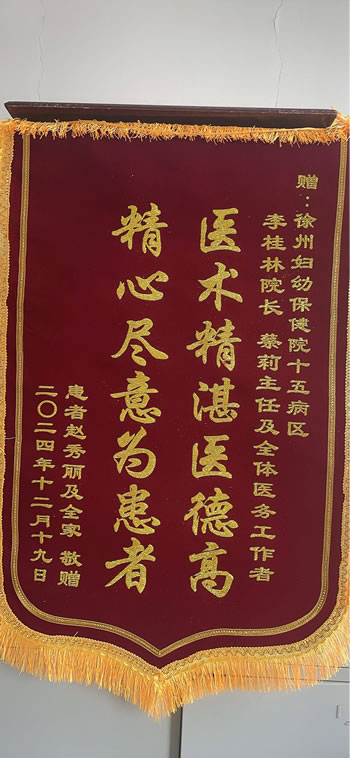 赠：徐州妇幼保健院十五病区
李桂林院长 蔡莉主任及全体医务工作者
医术精湛医德高
精心尽意为患者
患者赵秀丽及全家 敬赠
二〇二四年十二月十九日